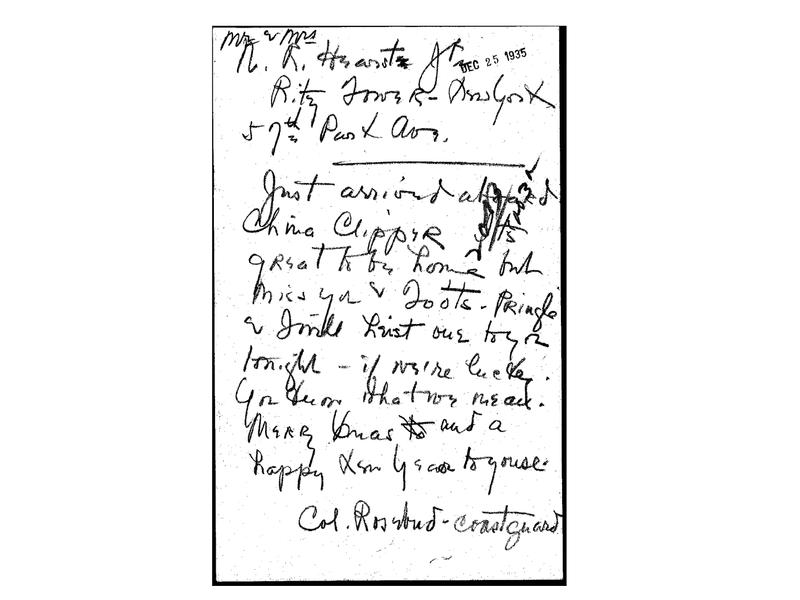 Mr & Mrs
W. R. Hearst Jr.
DEC 25 1935
Ritz Tower - New York
57th Park Ave.
Just arrived aboard
China Clipper its
great to be home but
miss you & Toots - Pringle
& I will hoist one to you
tonight - if we're lucky.
You know what we mean.
Merry Xmas and a
happy New Year to youse.
Col. Rosebud - coastguard